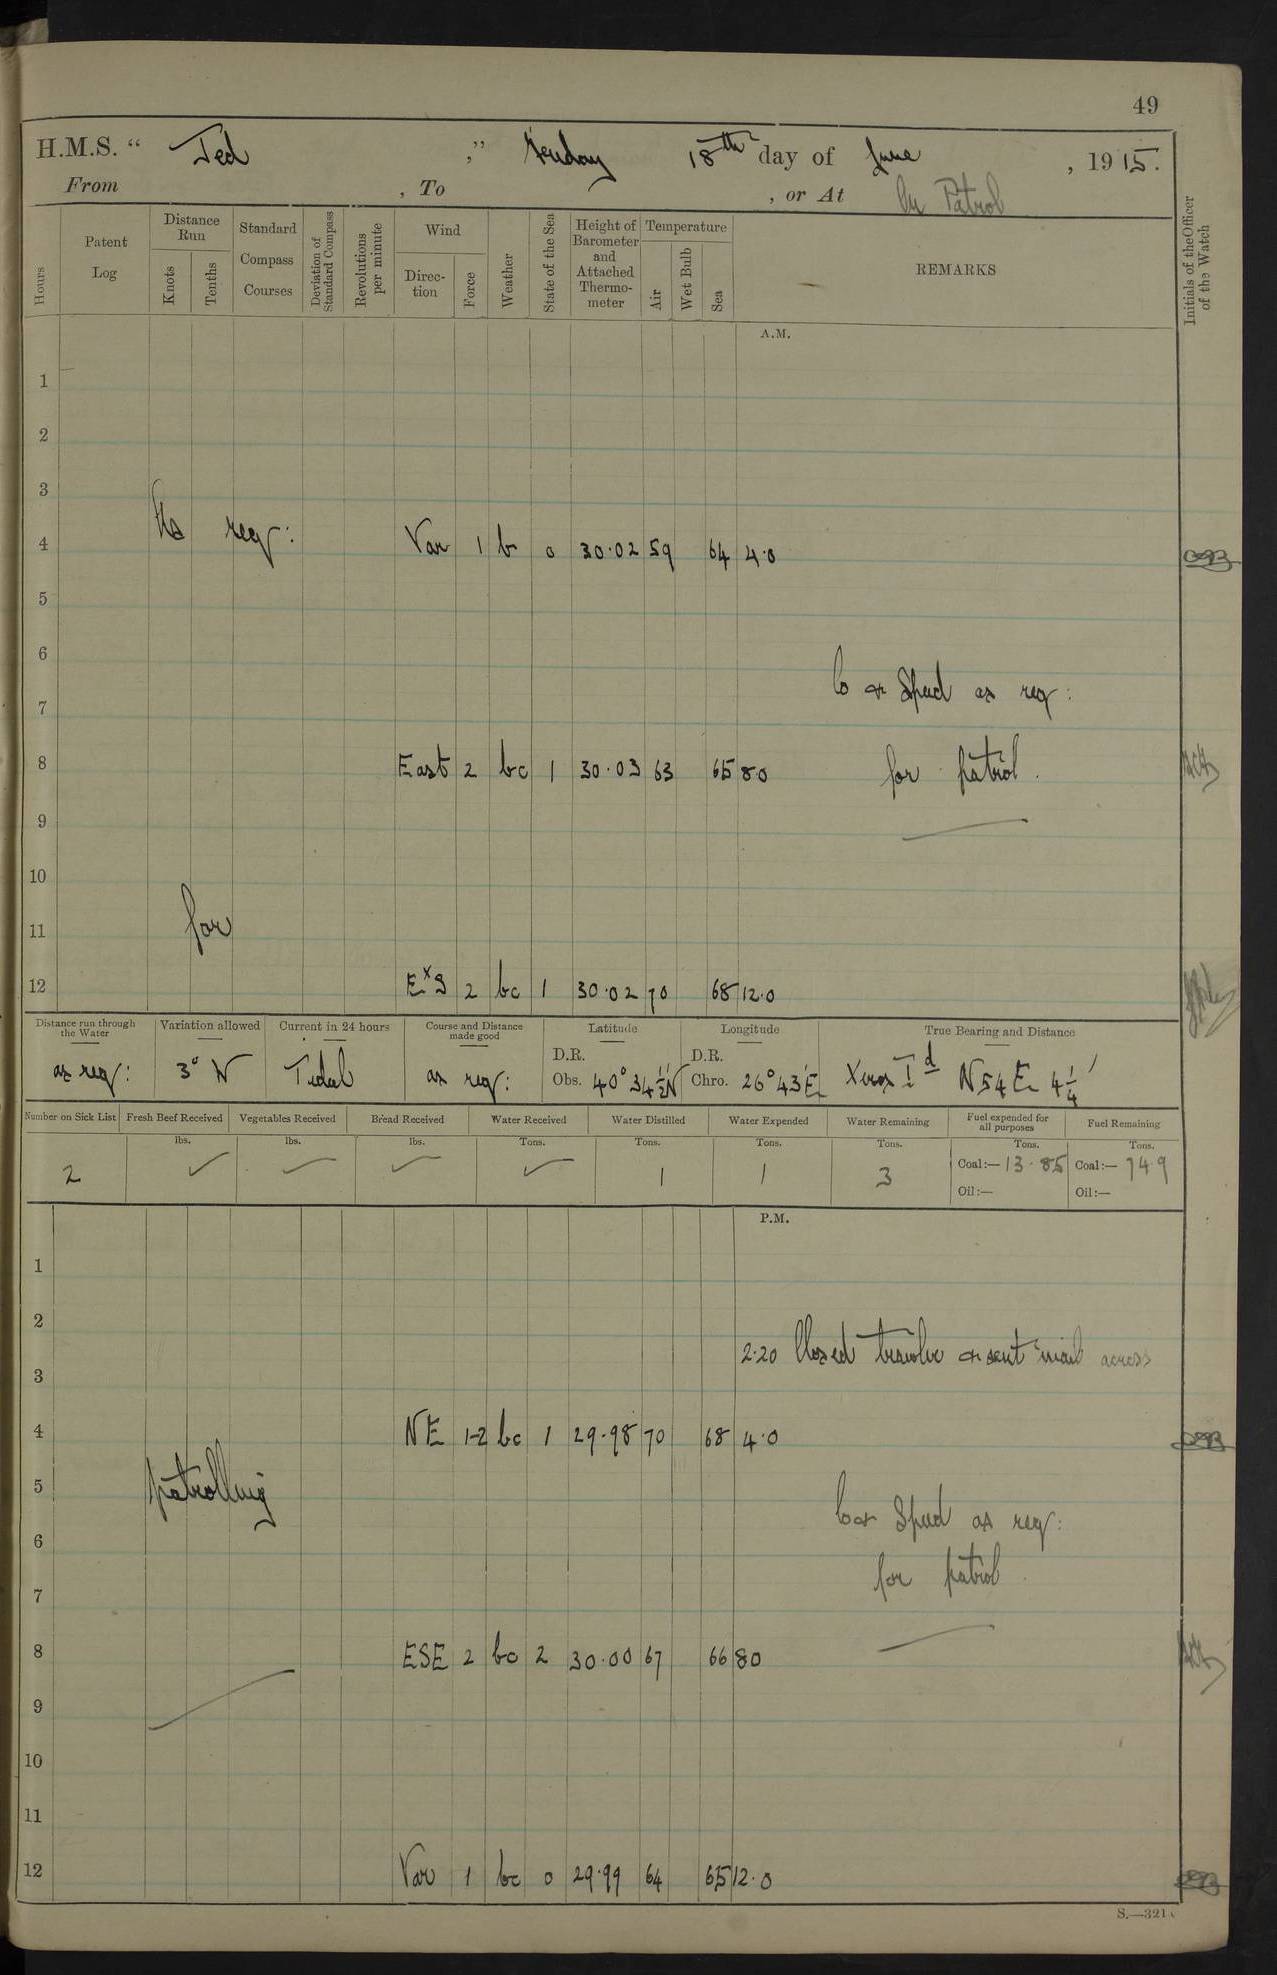 49
H.M.S. " Jed ," Friday 18th day of June , 1915.
From , To , or At On Patrol
Hours
Patent Log
Distance Run
Knots
Tenths
Standard Compass Courses
Deviation of Standard Compass
Revolutions per minute
Wind
Direc-tion
Force
Weather
State of the Sea
Height of Barometer and Attached Thermo-meter
Temperature
Air
Wet Bulb
Sea
REMARKS
Initials of the Officer of the Watch
A.M.
1
2
3
As req:
4 Var 1 b 0 30.02 59 64 4.0
5
6
Co & Speed as req:
7
8 East 2 bc 1 30.03 63 65 80 for patrol.
9
10
for
11
12 ExS 2 bc 1 30.02 70 68 12.0
Distance run through the Water
as req:
Variation allowed
3° W
Current in 24 hours
Tidal
Course and Distance made good
as req:
Latitude
D.R.
Obs. 40° 34½' N
Longitude
D.R.
Chro. 26° 43' E
True Bearing and Distance
Xeros Id N54E 4¼'
Number on Sick List
2
Fresh Beef Received
lbs.
Vegetables Received
lbs.
Bread Received
lbs.
Water Received
Tons.
Water Distilled
Tons.
1
Water Expended
Tons.
1
Water Remaining
Tons.
3
Fuel expended for all purposes
Tons.
Coal:— 13.85
Oil:—
Fuel Remaining
Tons.
Coal:— 749
Oil:—
P.M.
1
2
2.20 Closed & sent mail across
3
4 NE 1-2 bc 1 29.98 70 68 4.0
5 patrolling
Co & Speed as req:
6
for patrol
7
8 ESE 2 bc 2 30.00 67 66 80
9
10
11
12 Var 1 bc 0 29.99 64 65 12.0
S.—321